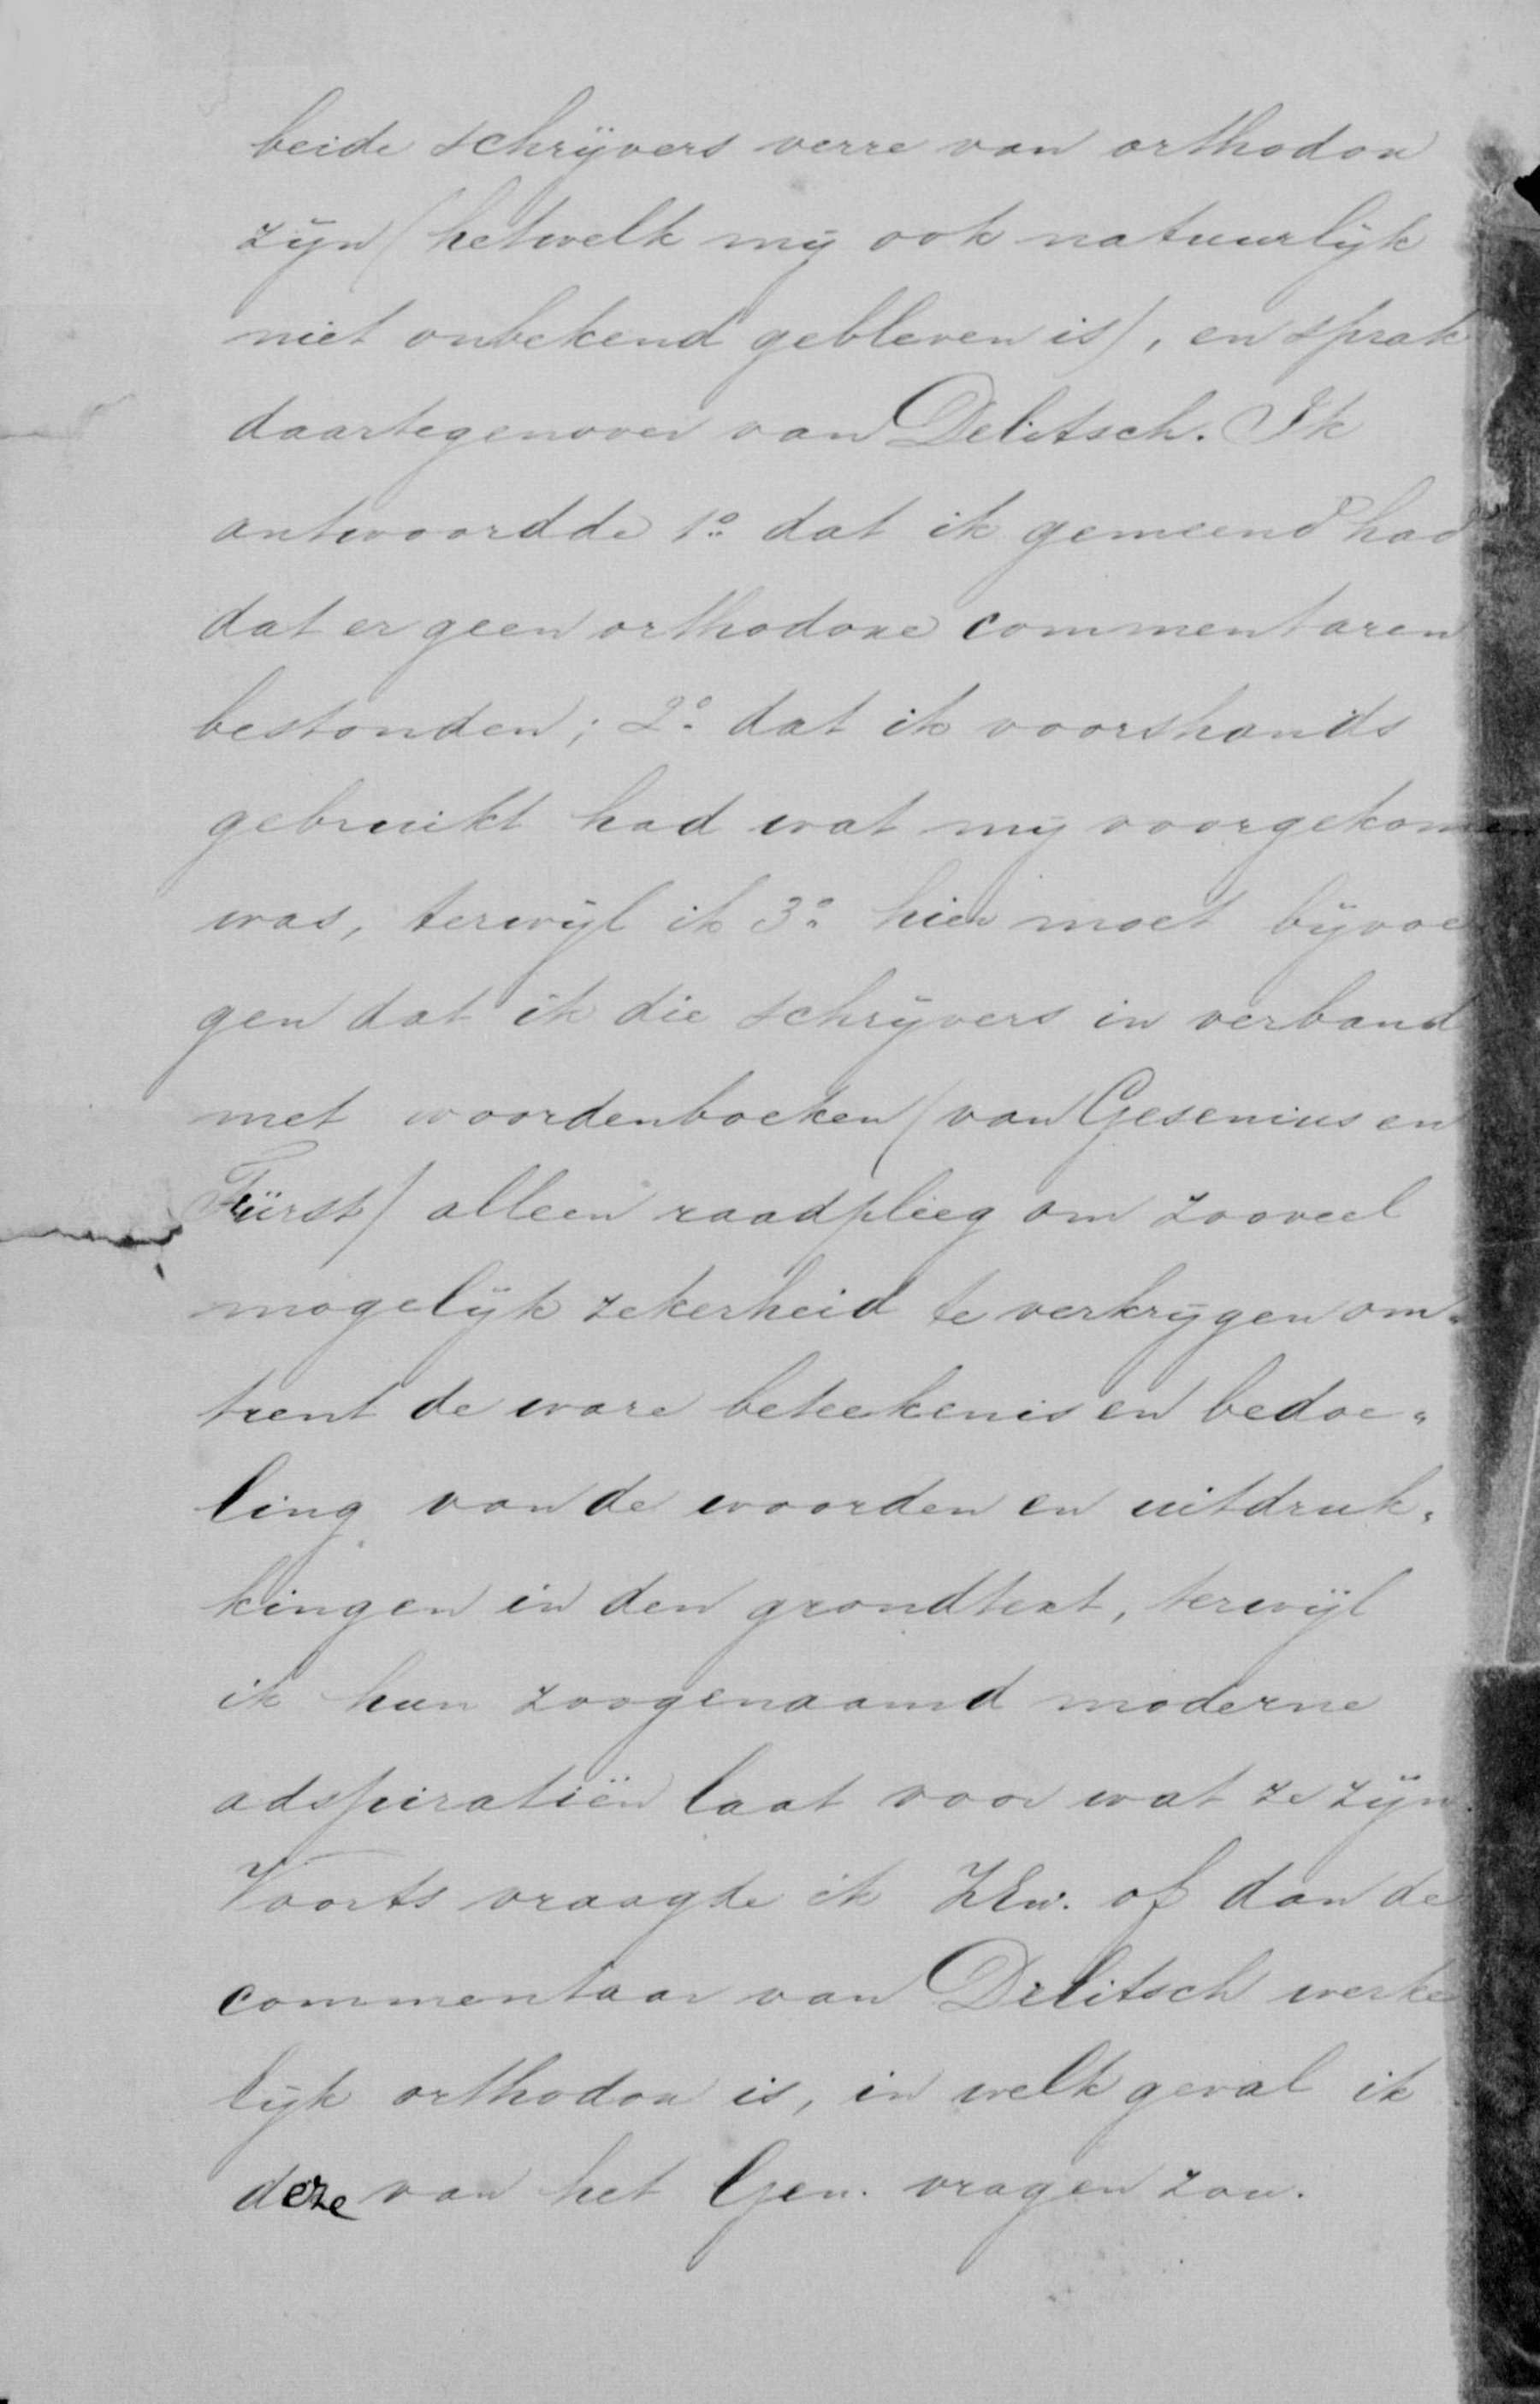 beide schrijvers verre van orthodox
zijn (hetwelk mij ook natuurlijk
niet onbekend gebleven is), en sprak
daartegenover van Delitsch. Ik
antwoordde 1º dat ik gemeend had
dat er geen orthodoxe commentaren
bestonden; 2º dat ik voorshands
gebruikt had wat mij voorgekomen
was, terwijl ik 3º hier moet bijvoe
gen dat ik die schrijvers in verband
met woordenboeken (van Gesenius en
Fürst) alleen raadpleeg om zooveel
mogelijk zekerheid te verkrijgen om-
trent de ware beteekenis en bedoe-
ling van de woorden en uitdruk-
kingen in den grondtext, terwijl
ik hun zoogenaamd moderne
adspiratiën laat voor wat ze zijn.
Voorts vraagde ik ZEw. of dan de
commentaar van Delitsch werke
lijk orthodox is, in welk geval ik
deze van het Gen. vragen zou.